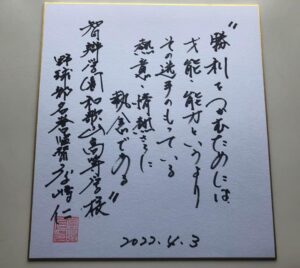 ”勝利をつかむためには
才能・能力というより
その選手のもっている
熱意・情熱そして
執念である”
智辯学園和歌山高等学校
野球部名誉監督 高嶋仁
2022.4.3